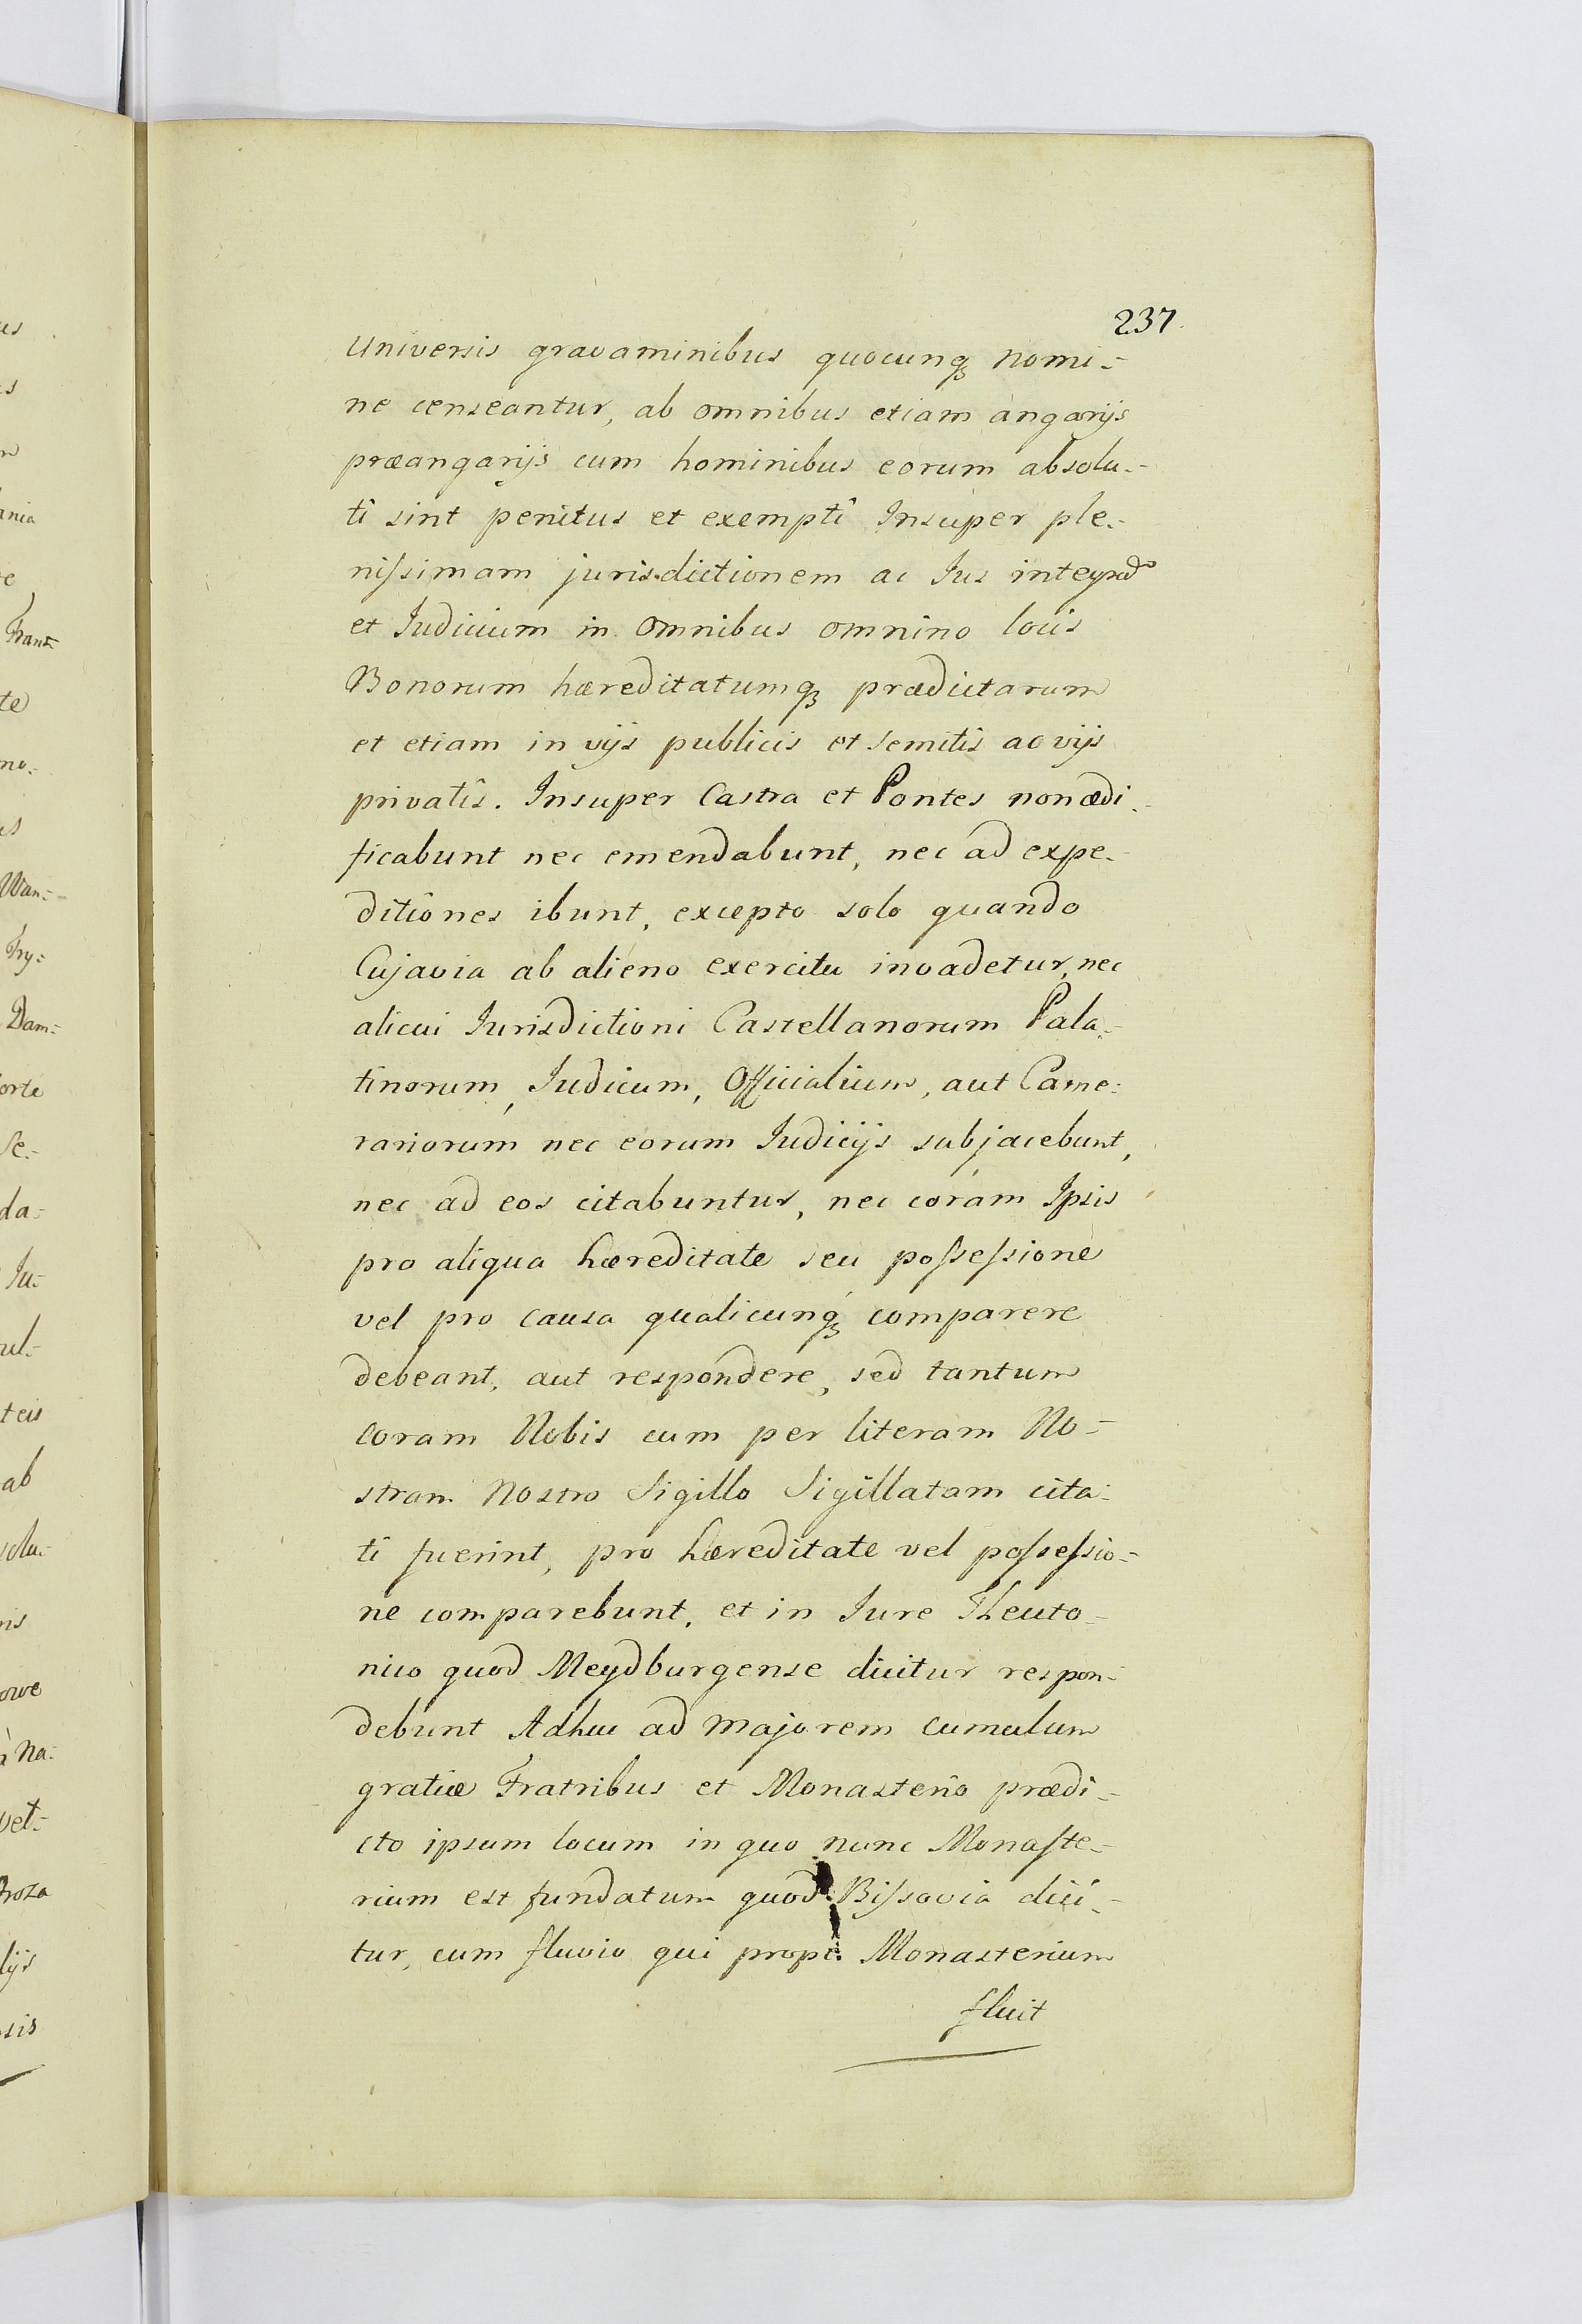 237.
Universis gravaminibus quocunq₃ nomi=
ne censeantur, ab omnibus etiam angarijs
præangarijs cum hominibus eorum absolu=
ti sint penitus et exempti Insuper ple=
nissimam jurisdictionem ac Jus
et Judicium in omnibus omnino locis
Bonorum hæreditatumq₃ prædictarum
et etiam in vijs publicis et semitis ac vijs
privatis. Insuper Castra et Pontes non ædi=
ficabunt nec emendabunt, nec ad expe=
ditiones ibunt, excepto solo quando
Cujavia ab alieno exercitu invadetur, nec
alicui Jurisdictioni Castellanorum Pala=
tinorum, Judicum, Officialium, aut Came=
rariorum nec eorum Judicijs subjacebunt,
nec ad eos citabuntur, nec coram Ipsis
pro aliqua hæreditate seu possessione
vel pro causa qualicunq₃ comparere
debeant, aut respondere, sed tantum
coram Nobis cum per literam No=
stram Nostro Sigillo Sigillatam cita=
ti fuerint, pro hæreditate vel possessio=
ne comparebunt, et in Jure Theuto=
nico quod Meydburgense dicitur respon=
debunt Adhuc ad majorem cumulum
gratiæ Fratribus et Monasterio prædi=
cto ipsum locum in quo nunc Monaste=
rium est fundatum quod Bissovia dici=
tur, cum fluvio qui prope Monasterium
fluit
us
s
ania
te
Tran=
te
no=
us
Wan=
Try=
Dam=
orte
Se=
da=
Ju=
ul=
teis
ab
solu=
nis
owe
à Na=
vet=
roza
lijs
sis